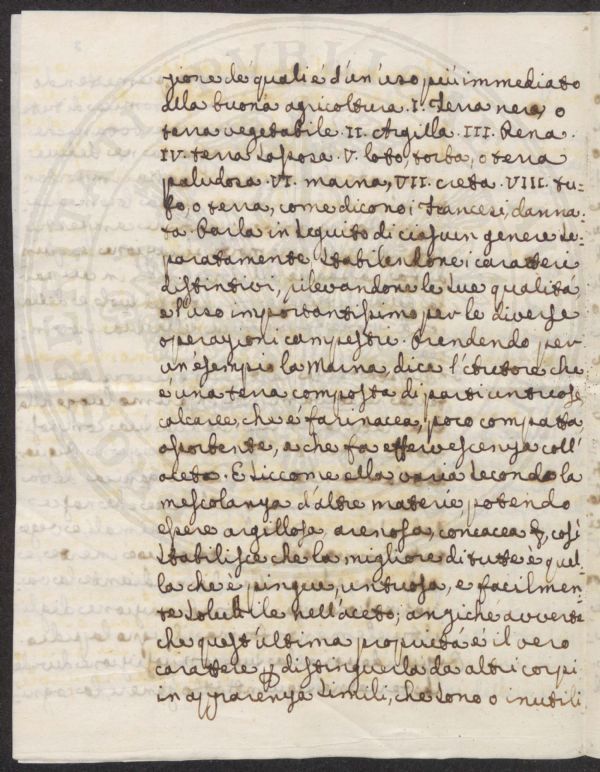 zione de quali è d'un uso più immediato
della buona agricoltura. I. Terra nera, o
terra vegetabile. II. Argilla. III. Rena.
IV. terra saposa. V. loto, torba, o terra
paludosa. VI. marna, VII. creta. VIII. tu-
fo, o terra, come dicono i Francesi, danna-
ta. Parla in seguito di ciascun genere se-
paratamente stabilendone i caratteri
distintivi, rilevandone le sue qualità
e l'uso importantissimo per le diverse
operazioni campestri. Prendendo per
un'esempio la Marna, dice l'Autore che
è una terra composta di parti untuose
calcaree, che è farinacea, poco compatta
assorbente, e che fa effervescenza coll'
aceto. E siccome ella varia secondo la
mescolanza d'altre materie potendo
essere argillosa, arenosa, concacea &, così
stabilisce che la migliore di tutte è quel-
la che è pingue, untuosa, e facilmen-
te solubile nell'aceto; anziché avverte
che quest'ultima proprietà è il vero
carattere p distinguerla da altri corpi
in apparenza simili, che sono o inutili